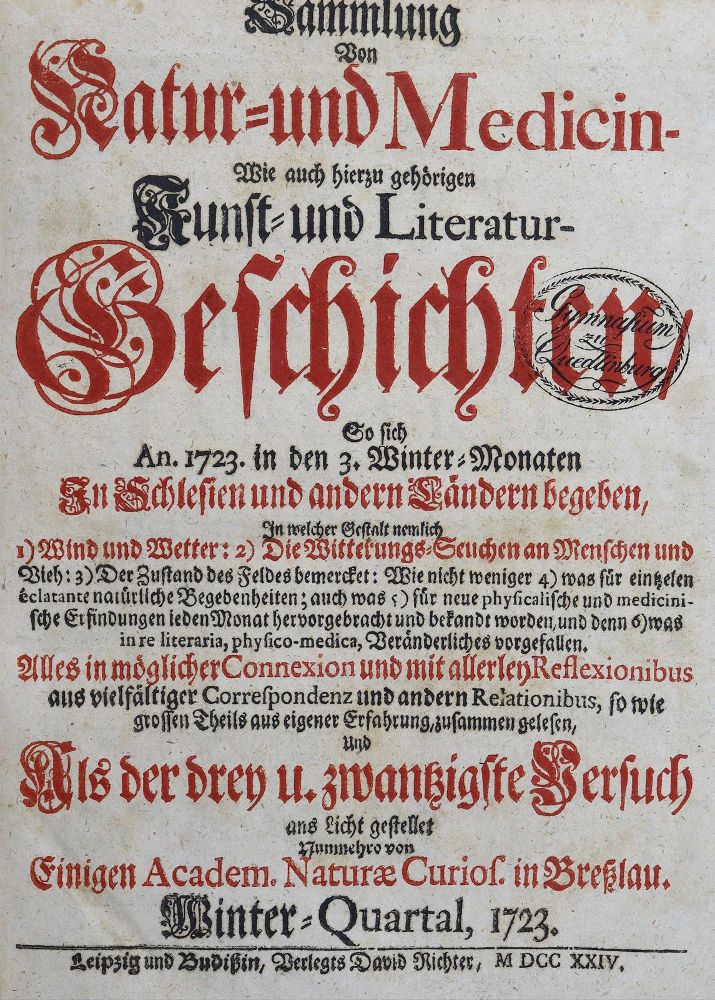 Sammlung
Von
Natur- und Medicin-
Wie auch hierzu gehörigen
Kunst- und Literatur-
Geschichten/
Gymnasium
zu
Quedlinburg
So sich
An. 1723. in den 3. Winter-Monaten
In Schlesien und andern Ländern begeben,
In welcher Gestalt nemlich
1) Wind und Wetter: 2) Die Witterungs-Seuchen an Menschen und
Vieh: 3) Der Zustand des Feldes bemercket: Wie nicht weniger 4) was für eintzelen
éclatante natürliche Begebenheiten; auch was 5) für neue physicalische und medicini-
sche Erfindungen ieden Monat hervorgebracht und bekandt worden, und denn 6) was
in re literaria, physico-medica, Veränderliches vorgefallen.
Alles in möglicher Connexion und mit allerley Reflexionibus
aus vielfältiger Correspondenz und andern Relationibus, so wie
grossen Theils aus eigener Erfahrung, zusammen gelesen,
Und
Als der drey u. zwantzigste Versuch
ans Licht gestellet
Nunmehro von
Einigen Academ. Naturæ Curios. in Breßlau.
Winter-Quartal, 1723.
Leipzig und Budißin, Verlegts David Richter, M DCC XXIV.